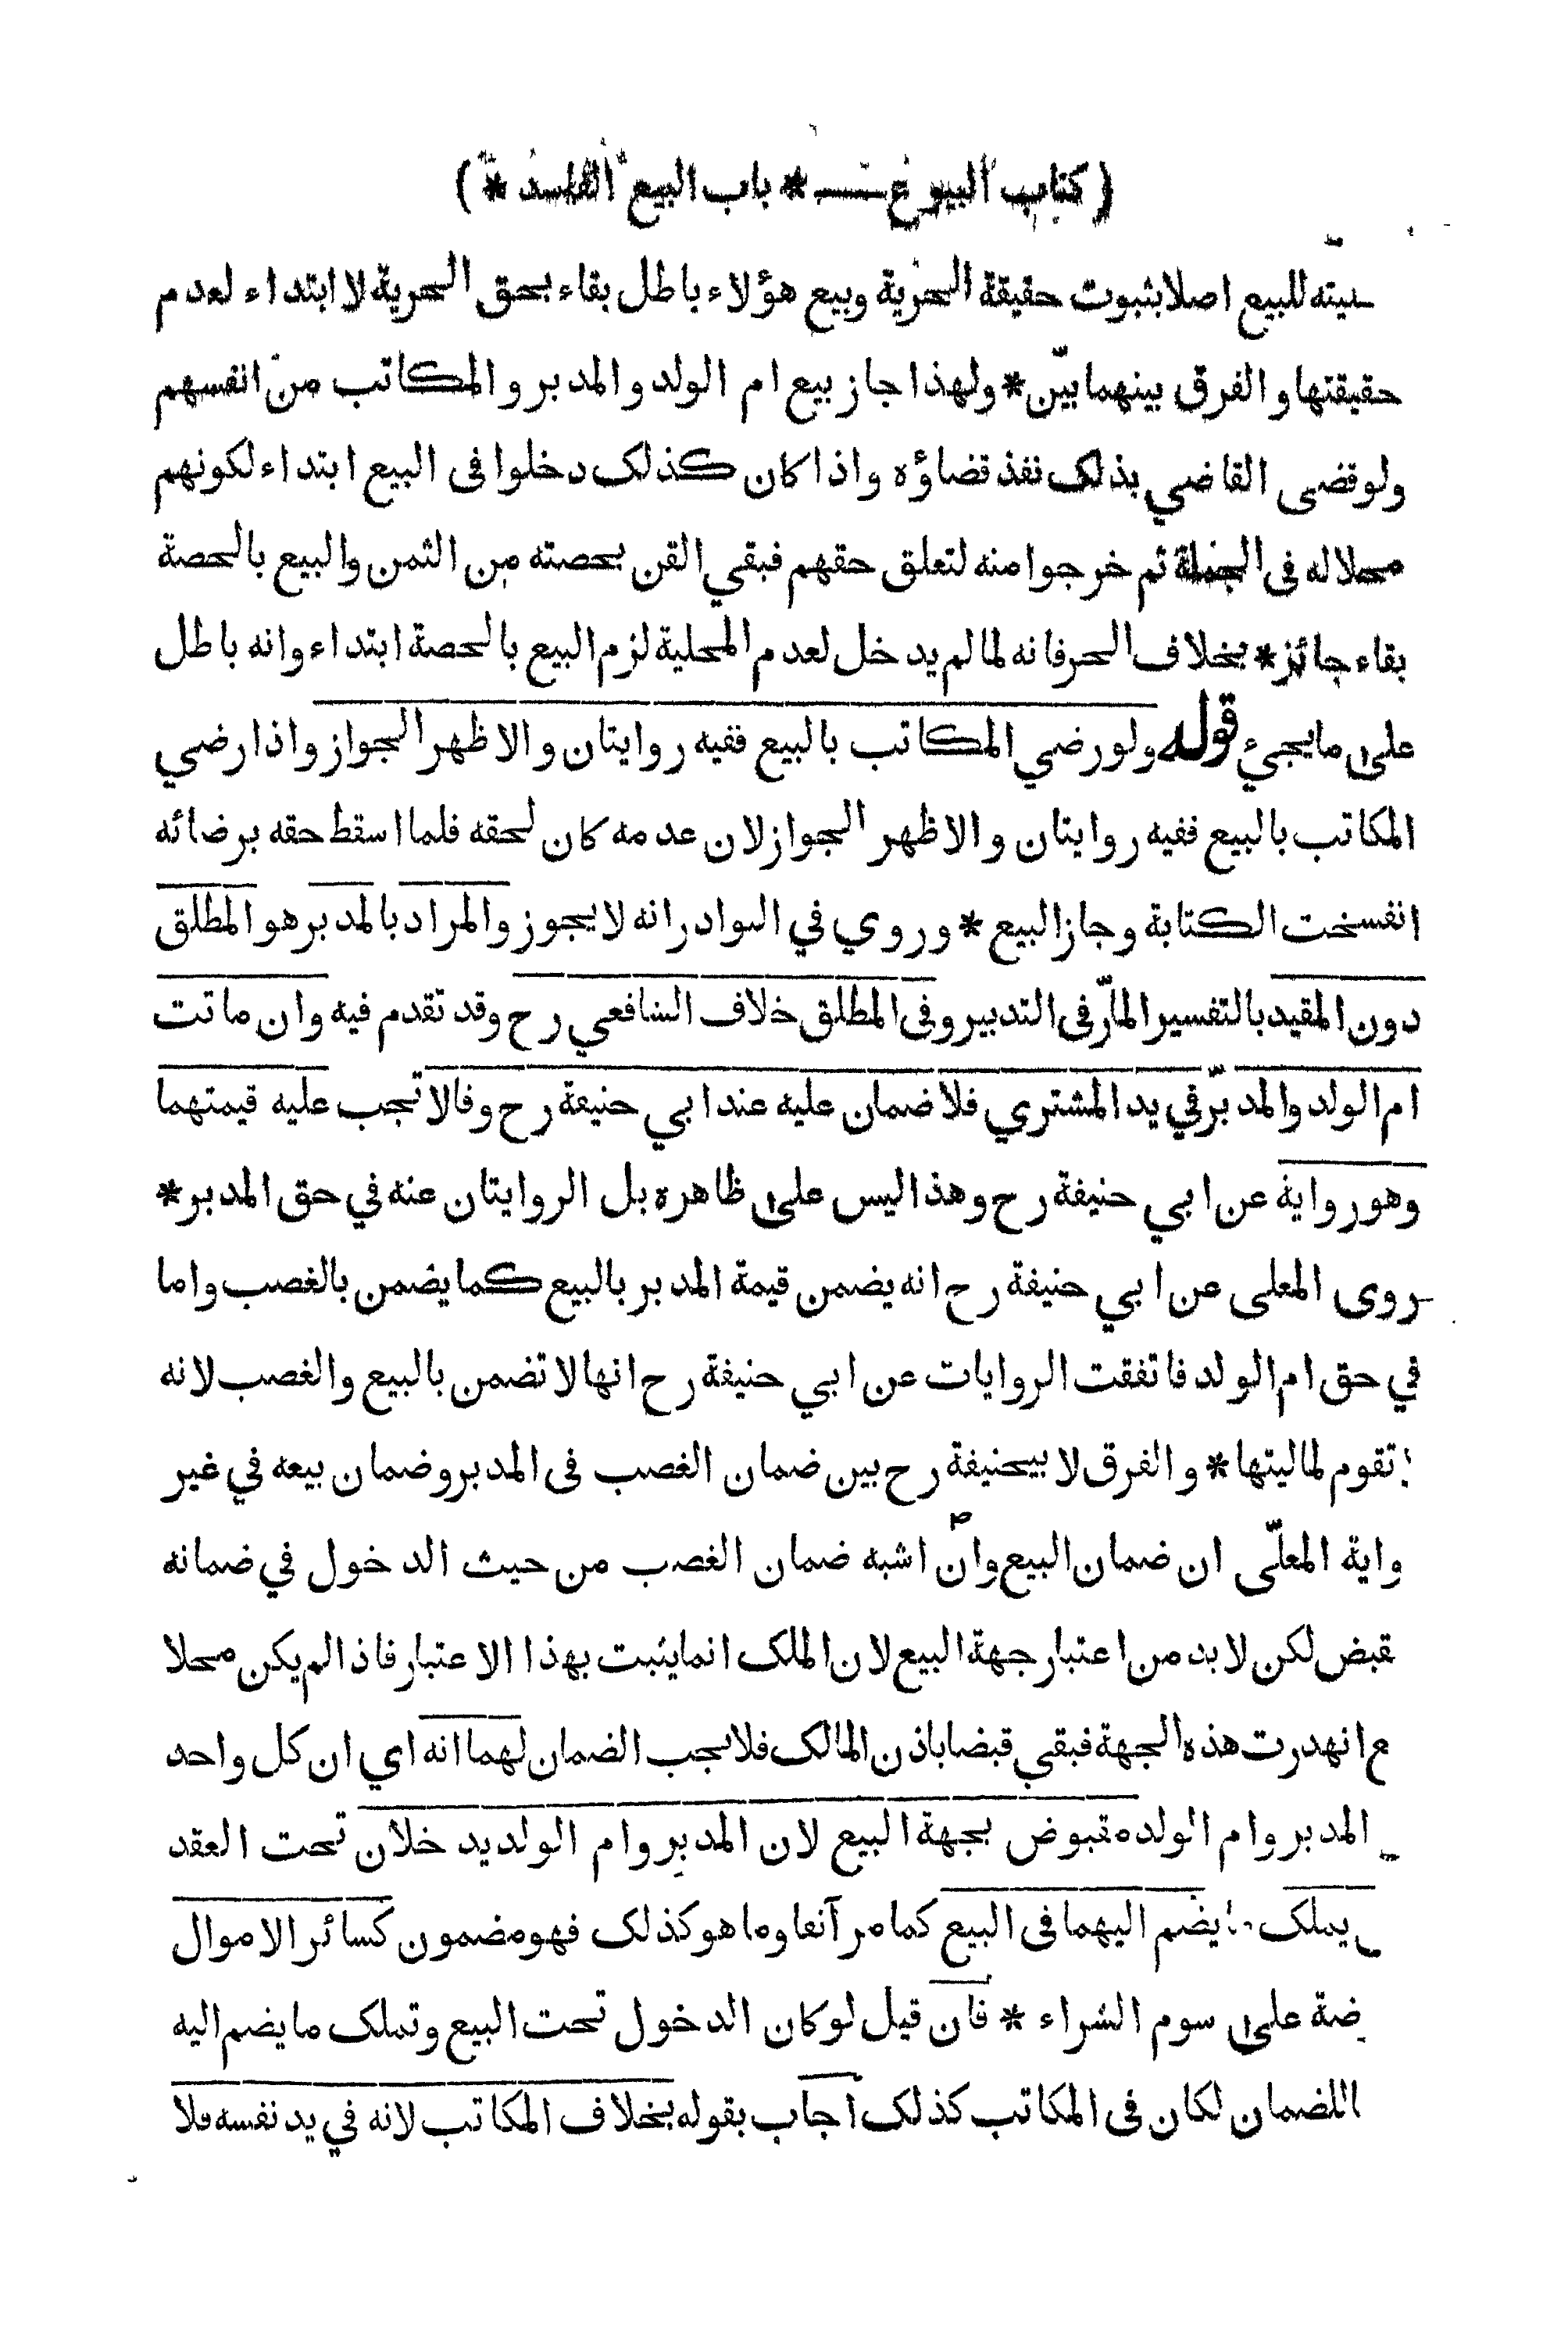 ( كتاب البيوع * باب البيع الفاسد * )
للبيع اصلا بثبوت حقيقة الحرية وبيع هؤلاء باطل بقاء بحق الحرية لا ابتداء لعدم
حقيقتها والفرق بينهما بيّن * ولهذا جاز بيع ام الولد والمدبر والمكاتب من انفسهم
ولو قضى القاضي بذلك نفذ قضاؤه واذا كان كذلك دخلوا فى البيع ابتداء لكونهم
محلا له فى الجملة ثم خرجوا منه لتعلق حقهم فبقي القن بحصته من الثمن والبيع بالحصة
بقاء جائز * بخلاف الحر فانه لما لم يدخل لعدم المحلية لزم البيع بالحصة ابتداء وانه باطل
على ما يجيء قوله ولو رضي المكاتب بالبيع ففيه روايتان والاظهر الجواز واذا رضي
المكاتب بالبيع ففيه روايتان والاظهر الجواز لان عدمه كان لحقه فلما اسقط حقه برضائه
انفسخت الكتابة وجاز البيع * وروي في النوادر انه لا يجوز والمراد بالمدبر هو المطلق
دون المقيد بالتفسير المارّ فى التدبير وفى المطلق خلاف الشافعي رح وقد تقدم فيه وان ماتت
ام الولد والمدبّر في يد المشتري فلا ضمان عليه عند ابي حنيفة رح وقالا تجب عليه قيمتهما
وهو رواية عن ابي حنيفة رح وهذا ليس على ظاهره بل الروايتان عنه في حق المدبر *
روى المعلى عن ابي حنيفة رح انه يضمن قيمة المدبر بالبيع كما يضمن بالغصب واما
في حق ام الولد فاتفقت الروايات عن ابي حنيفة رح انها لا تضمن بالبيع والغصب لانه
تقوم لماليتها * والفرق لا بيحنيفة رح بين ضمان الغصب فى المدبر وضمان بيعه في غير
واية المعلّى ان ضمان البيع وان اشبه ضمان الغصب من حيث الدخول في ضمانه
قبض لكن لا بد من اعتبار جهة البيع لان الملك انما يثبت بهذا الاعتبار فاذا لم يكن محلا
ع انهدرت هذه الجهة فبقي قبضا باذن المالك فلا يجب الضمان لهما انه اي ان كل واحد
المدبر وام الولد مقبوض بجهة البيع لان المدبر وام الولد يدخلان تحت العقد
يملك ما يضم اليهما فى البيع كما مر آنفا وما هو كذلك فهو مضمون كسائر الاموال
ضة على سوم الشراء * فان قيل لو كان الدخول تحت البيع وتملك ما يضم اليه
للضمان لكان فى المكاتب كذلك أجاب بقوله بخلاف المكاتب لانه في يد نفسه فلا